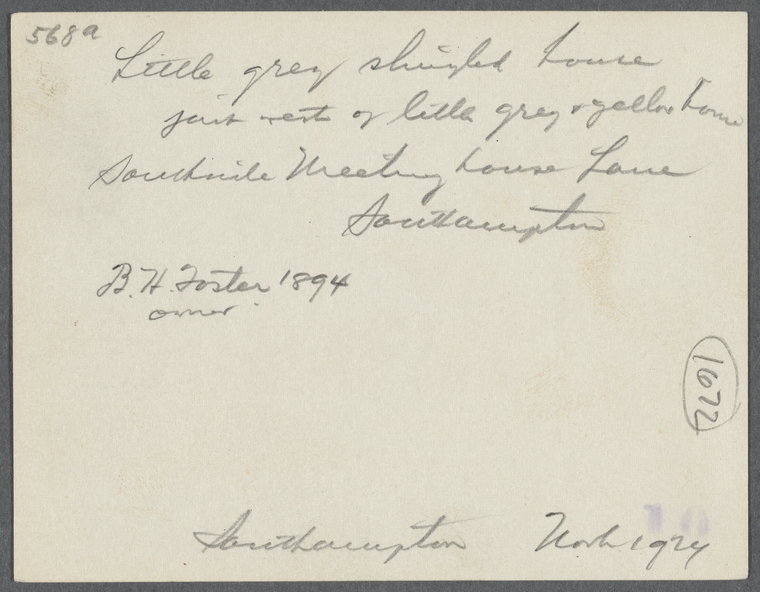 568a
Little grey shingled house
just west of little grey & yellow house
Southside Meeting house Lane
Southampton
B. H. Foster 1894
owner
1672
Southampton Nov 1924